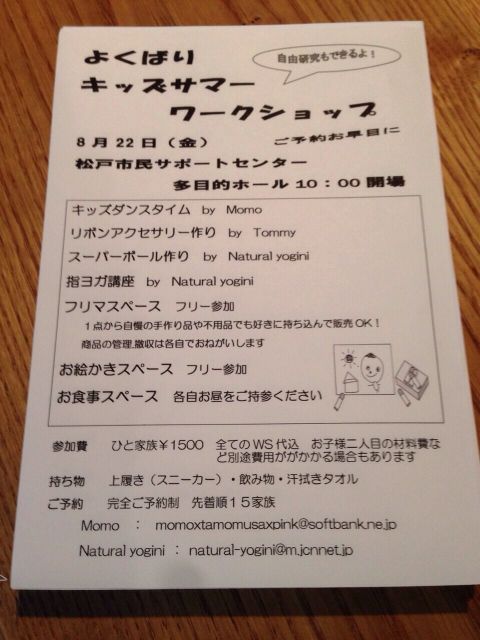 よくばり
自由研究もできるよ!
キッズサマー
ワークショップ
8月22日(金) ご予約お早目に
松戸市民サポートセンター
多目的ホール10:00開場
キッズダンスタイム by Momo
リボンアクセサリー作り by Tommy
スーパーボール作り by Natural yogini
指ヨガ講座 by Natural yogini
フリマスペース フリー参加
1点から自慢の手作り品や不用品でも好きに持ち込んで販売OK!
商品の管理,撤収は各自でおねがいします
お絵かきスペース フリー参加
お食事スペース 各自お昼をご持参ください
参加費 ひと家族¥1500 全てのWS代込 お子様二人目の材料費な
ど別途費用ががかかる場合もあります
持ち物 上履き(スニーカー)・飲み物・汗拭きタオル
ご予約 完全ご予約制 先着順15家族
Momo : momoxtamomusaxpink@softbank.ne.jp
Natural yogini : natural-yogini@m.jcnnet.jp